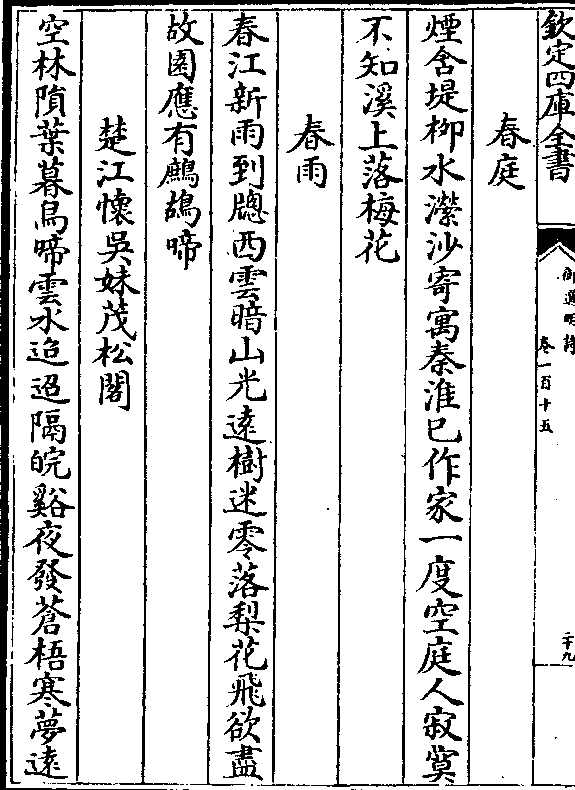 欽定四庫全書
御選明詩
卷一百十五
二十九
春庭
煙含堤栁水濴沙寄寓秦淮已作家一度空庭人寂寞
不知溪上落梅花
春雨
春江新雨到牕西雲暗山光遠樹迷零落梨花飛欲盡
故園應有鷓鴣啼
楚江懷吳妹茂松閣
空林隕葉暮烏啼雲水迢迢隔皖谿夜發蒼梧寒夢遠